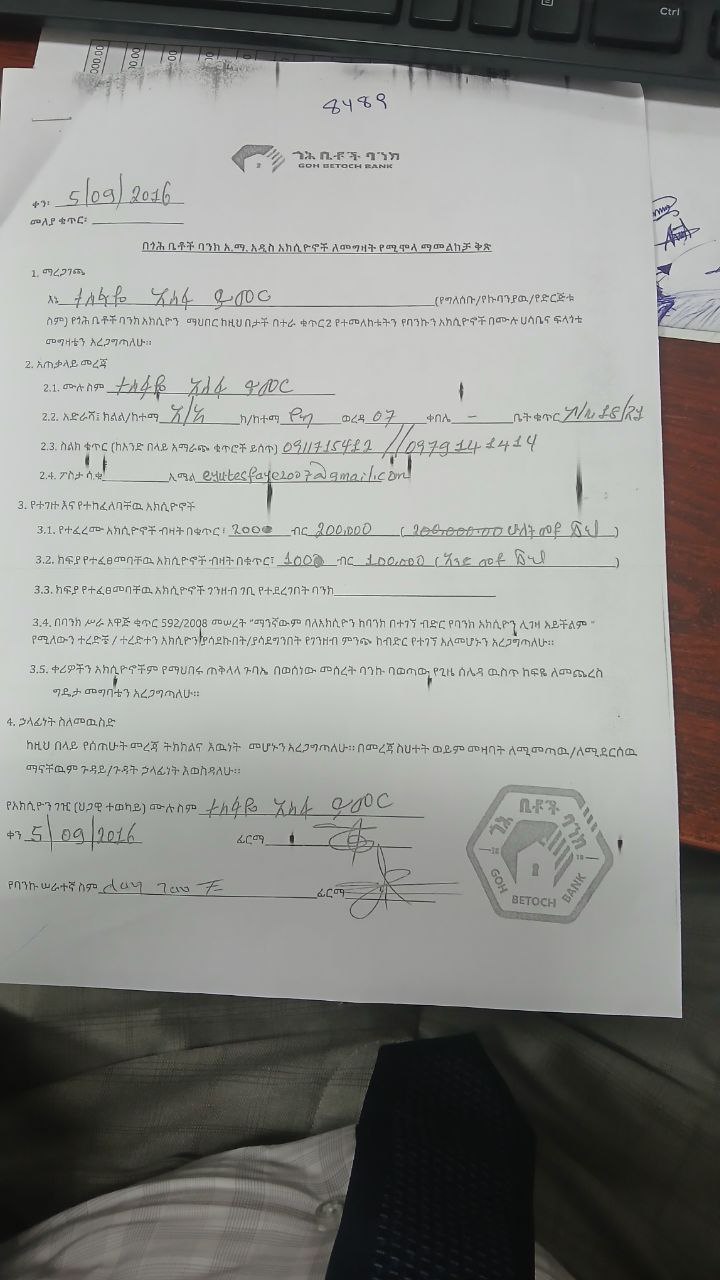 Ctrl
8489
ጎሕ ቤቶች ባንክ
GOH BETOCH BANK
ቀን፡ 5/09/2016
መለያ ቁጥር፡
በጎሕ ቤቶች ባንክ አ.ማ. አዲስ አክሲዮኖች ለመግዛት የሚሞላ ማመልከቻ ቅጽ
1. ማረጋገጫ
እኔ ተስፋዬ አሰፋ ይመር (የግለሰቡ/የኩባንያዉ/የድርጅቱ
ስም) የጎሕ ቤቶች ባንክ አክሲዮን ማህበር ከዚህ በታች በተራ ቁጥር 2 የተመለከቱትን የባንኩን አክሲዮኖች በሙሉ ሀሳቤና ፍላጎቴ
መግዛቴን አረጋግጣለሁ፡፡
2. አጠቃላይ መረጃ
2.1. ሙሉ ስም ተስፋዬ አሰፋ ይመር
2.2. አድራሻ፤ ክልል/ከተማ አ/አ ክ/ከተማ የካ ወረዳ 07 ቀበሌ – ቤት ቁጥር
2.3. ስልክ ቁጥር (ከአንድ በላይ አማራጭ ቁጥሮች ይሰጥ) 0911715412 // 0979141414
2.4. ፖስታ ሳ.ቁ ኢሜል eyutesfaye2007@gmail.com
3. የተገዙ እና የተከፈለባቸዉ አክሲዮኖች
3.1. የተፈረሙ አክሲዮኖች ብዛት በቁጥር፤ 200 ብር 200,000 ( 200,000.00 ሁለት መቶ ሺህ )
3.2. ክፍያ የተፈፀመባቸዉ አክሲዮኖች ብዛት በቁጥር፤ 100 ብር 100,000 ( አንድ መቶ ሺህ )
3.3. ክፍያ የተፈፀመባቸዉ አክሲዮኖች ገንዘብ ገቢ የተደረገበት ባንክ
3.4. በባንክ ሥራ አዋጅ ቁጥር 592/2008 መሠረት "ማንኛውም ባለአክሲዮን ከባንክ በተገኘ ብድር የባንክ አክሲዮን ሊገዛ አይችልም "
የሚለውን ተረድቼ / ተረድተን አክሲዮን ያሳደኩበት/ያሳደግንበት የገንዘብ ምንጭ ከብድር የተገኘ አለመሆኑን አረጋግጣለሁ፡፡
3.5. ቀሪዎችን አክሲዮኖችም የማህበሩ ጠቅላላ ጉባኤ በወሰነው መሰረት ባንኩ ባወጣው የጊዜ ሰሌዳ ዉስጥ ከፍዬ ለመጨረስ
ግዴታ መግባቴን አረጋግጣለሁ፡፡
4. ኃላፊነት ስለመዉሰድ
ከዚህ በላይ የሰጠሁት መረጃ ትክክልና እዉነት መሆኑን አረጋግጣለሁ፡፡ በመረጃ ስህተት ወይም መዛባት ለሚመጣዉ/ለሚደርሰዉ
ማናቸዉም ጉዳይ/ጉዳት ኃላፊነት እወስዳለሁ፡፡
የአክሲዮን ገዢ (ህጋዊ ተወካይ) ሙሉ ስም ተስፋዬ አሰፋ ይመር
ቀን 5/09/2016 ፊርማ
የባንኩ ሠራተኛ ስም ፊርማ
ጎሕ ቤቶች ባንክ
GOH BETOCH BANK